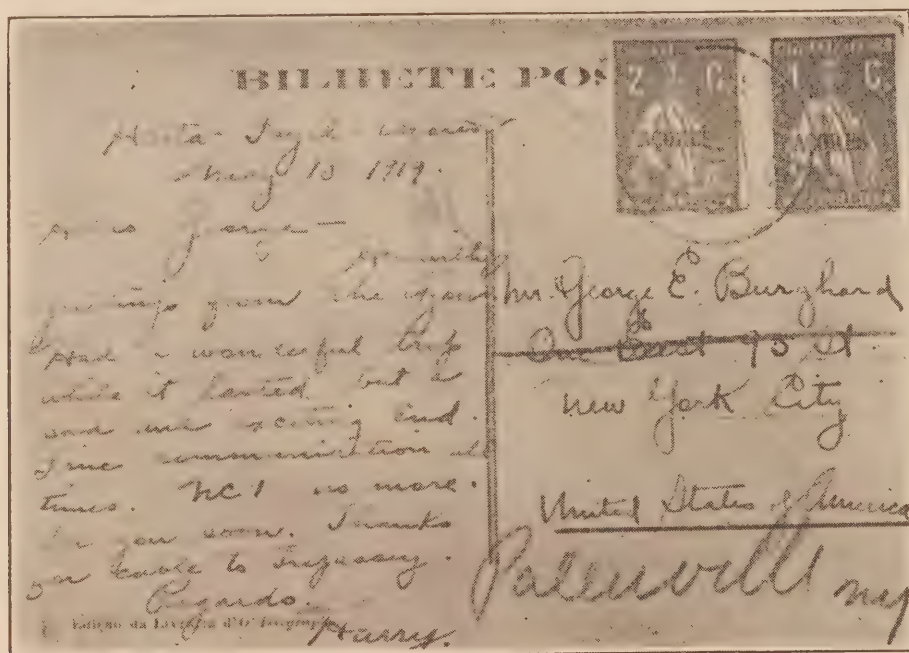 BILHETE POS
2 C.
1 C.
AÇORES
AÇORES
Horta - Fayal - Azores
May 13 1919.
George -
greetings from the
Had a wonderful trip
while it lasted but a
sad and exciting end.
Fine communication all
times. NC1 no more.
you soon. Thanks
for cable to
Regards.
Harry.
Mr. George E. Burghard
One East 93 St.
New York City
United States of America
Palenville NY